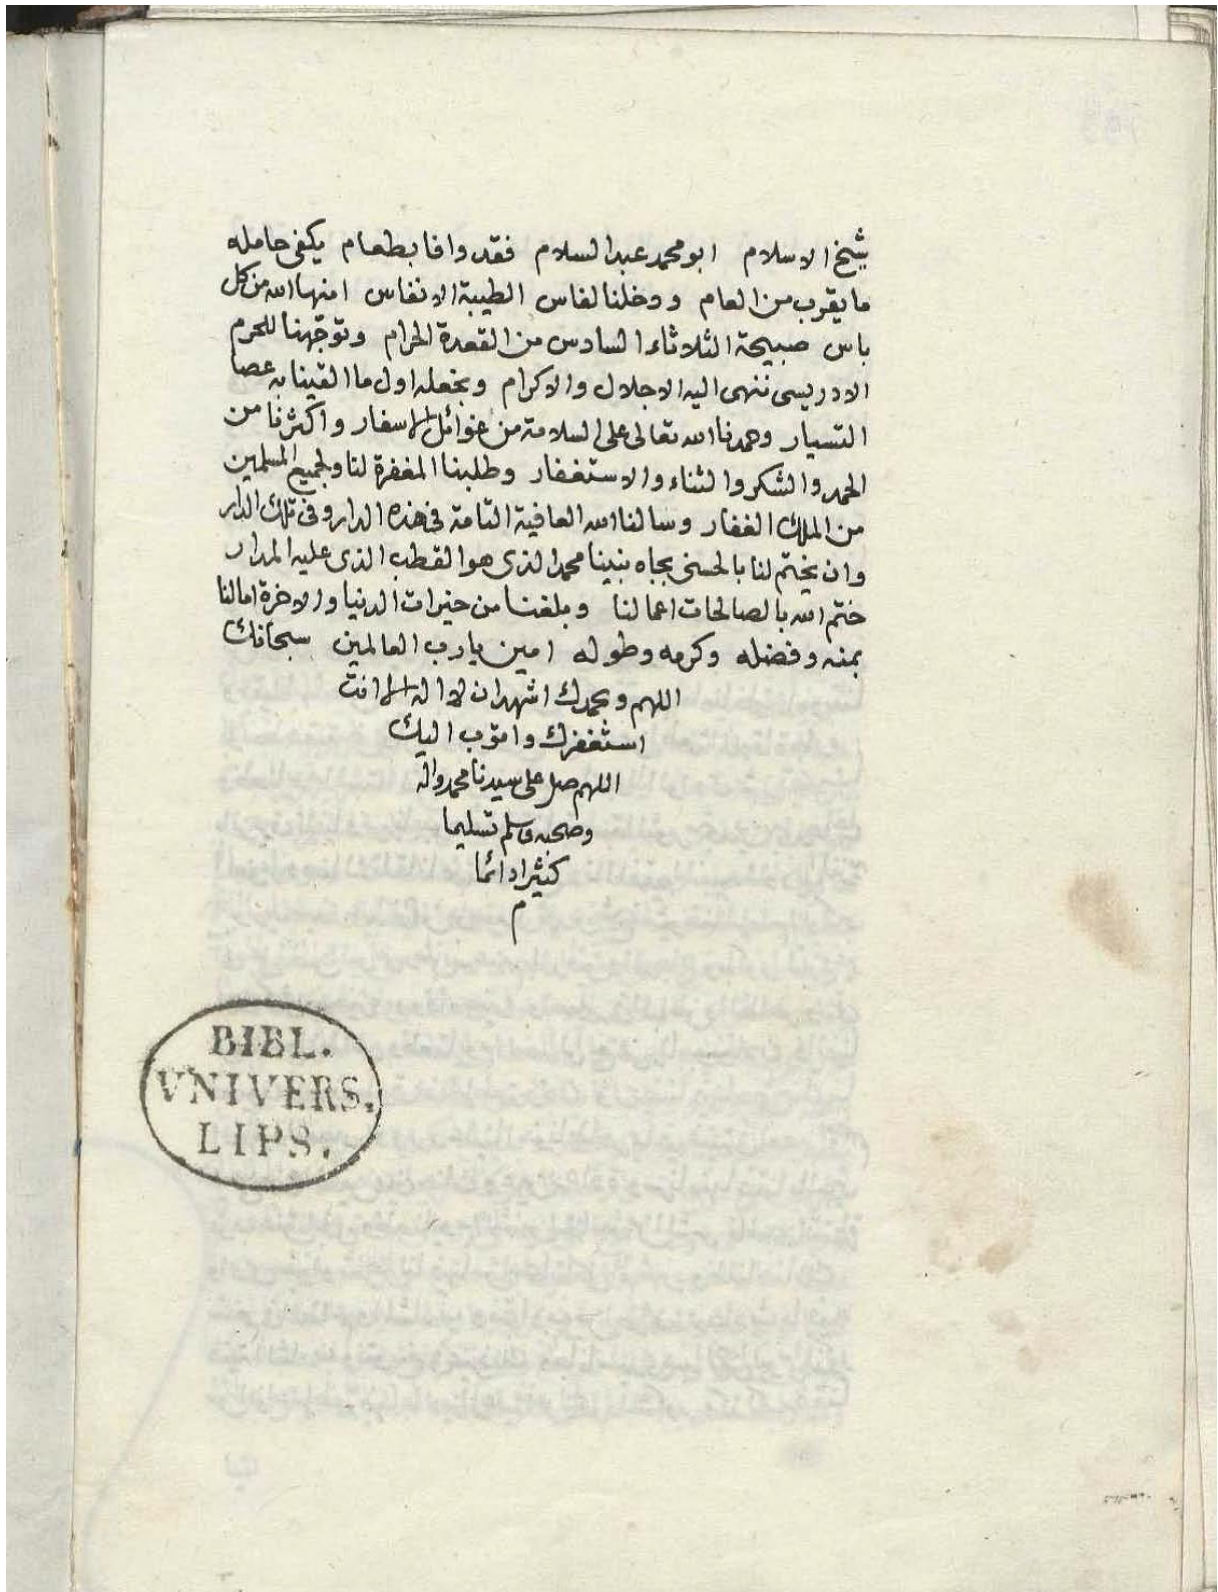 شيخ الاسلام ابو محمد عبد السلام فقد وافا بطعام يكفى حامله
ما يقرب من العام ودخلنا لفاس الطيبة الانفاس امنها الله من كل
باس صبيحة الثلاثاء السادس من القعدة الحرام وتوجّهنا للحرم
الادريسى ننهى اليه الاجلال والاكرام ونجعله اول ما القينا به عصا
التسيار وحمدنا الله تعالى على السلامة من غوائل الاسفار واكثرنا من
الحمد والشكر والثناء والاستغفار وطلبنا المغفرة لنا ولجميع المسلمين
من الملك الغفار وسالنا الله العافية التامة فى هذه الدار وفى تلك الدار
وان يختم لنا بالحسنى بجاه نبينا محمد الذى هو القطب الذى عليه المدار
ختم الله بالصالحات اعمالنا وبلغنا من خيرات الدنيا والاخرة امالنا
بمنه وفضله وكرمه وطوله امين يا رب العالمين سبحانك
اللهم وبحمدك اشهد ان لا اله الا انت
استغفرك واتوب اليك
اللهم صل على سيدنا محمد واله
وصحبه وسلم تسليما
كثيرا دائما
م
BIBL.
VNIVERS.
LIPS.